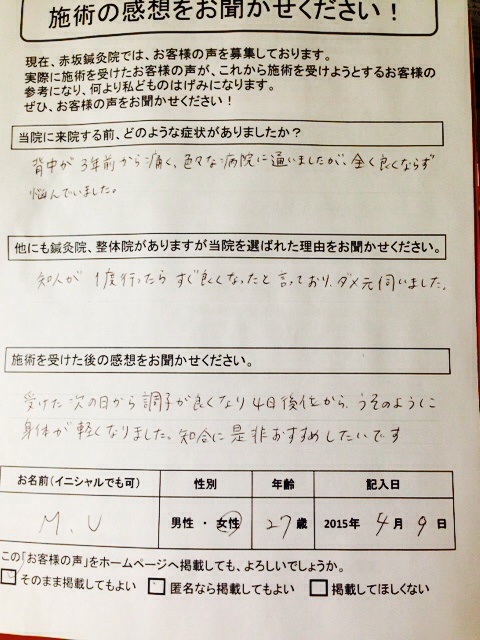 施術の感想をお聞かせください！
現在、赤坂鍼灸院では、お客様の声を募集しております。
実際に施術を受けたお客様の声が、これから施術を受けようとするお客様の
参考になり、何より私どものはげみになります。
ぜひ、お客様の声をお聞かせください！
当院に来院する前、どのような症状がありましたか？
背中が3年前から痛く、色々な病院に通いましたが、全く良くならず
悩んでいました。
他にも鍼灸院、整体院がありますが当院を選ばれた理由をお聞かせください。
知人が1度行ったらすご良くなったと言っており、ダメ元伺いました。
施術を受けた後の感想をお聞かせください。
受けた次の日から調子が良くなり4日後位から、うそのように
身体が軽くなりました。知合に是非おすすめしたいです
お名前（イニシャルでも可） 性別 年齢 記入日
M.U 男性・女性 27歳 2015年4月9日
この「お客様の声」をホームページへ掲載しても、よろしいでしょうか。
そのまま掲載してもよい 匿名なら掲載してもよい 掲載してほしくない